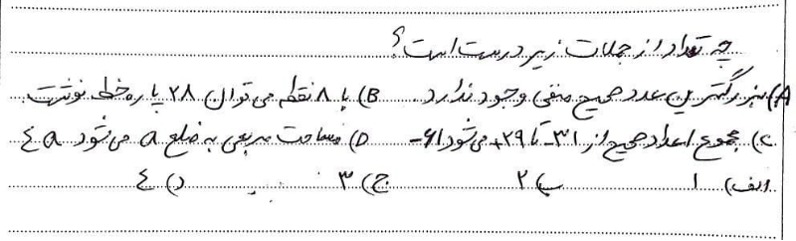 چه تعداد از جملات زیر درست است؟
A) بزرگترین عدد صحیح منفی وجود ندارد. B) با ۸ نقطه می توان ۲۸ پاره خط نوشت.
C) مجموع اعداد صحیح از ۳۱- تا ۲۹+ می شود ۶۱- D) مساحت مربعی به ضلع a می شود 4a
الف) ۱ ب) ۲ ج) ۳ د) ٤